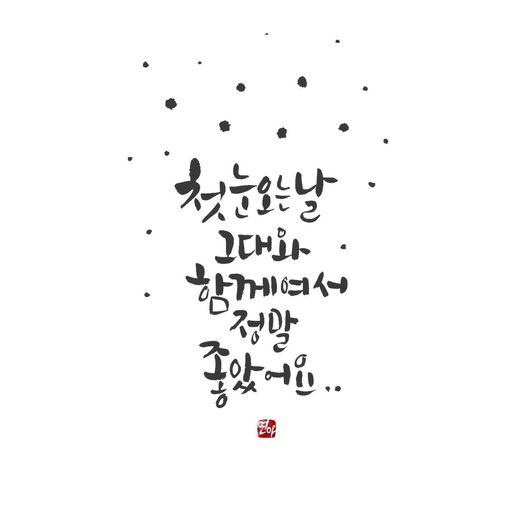 첫눈오는날
그대와
함께여서
정말
좋았어요..
연아